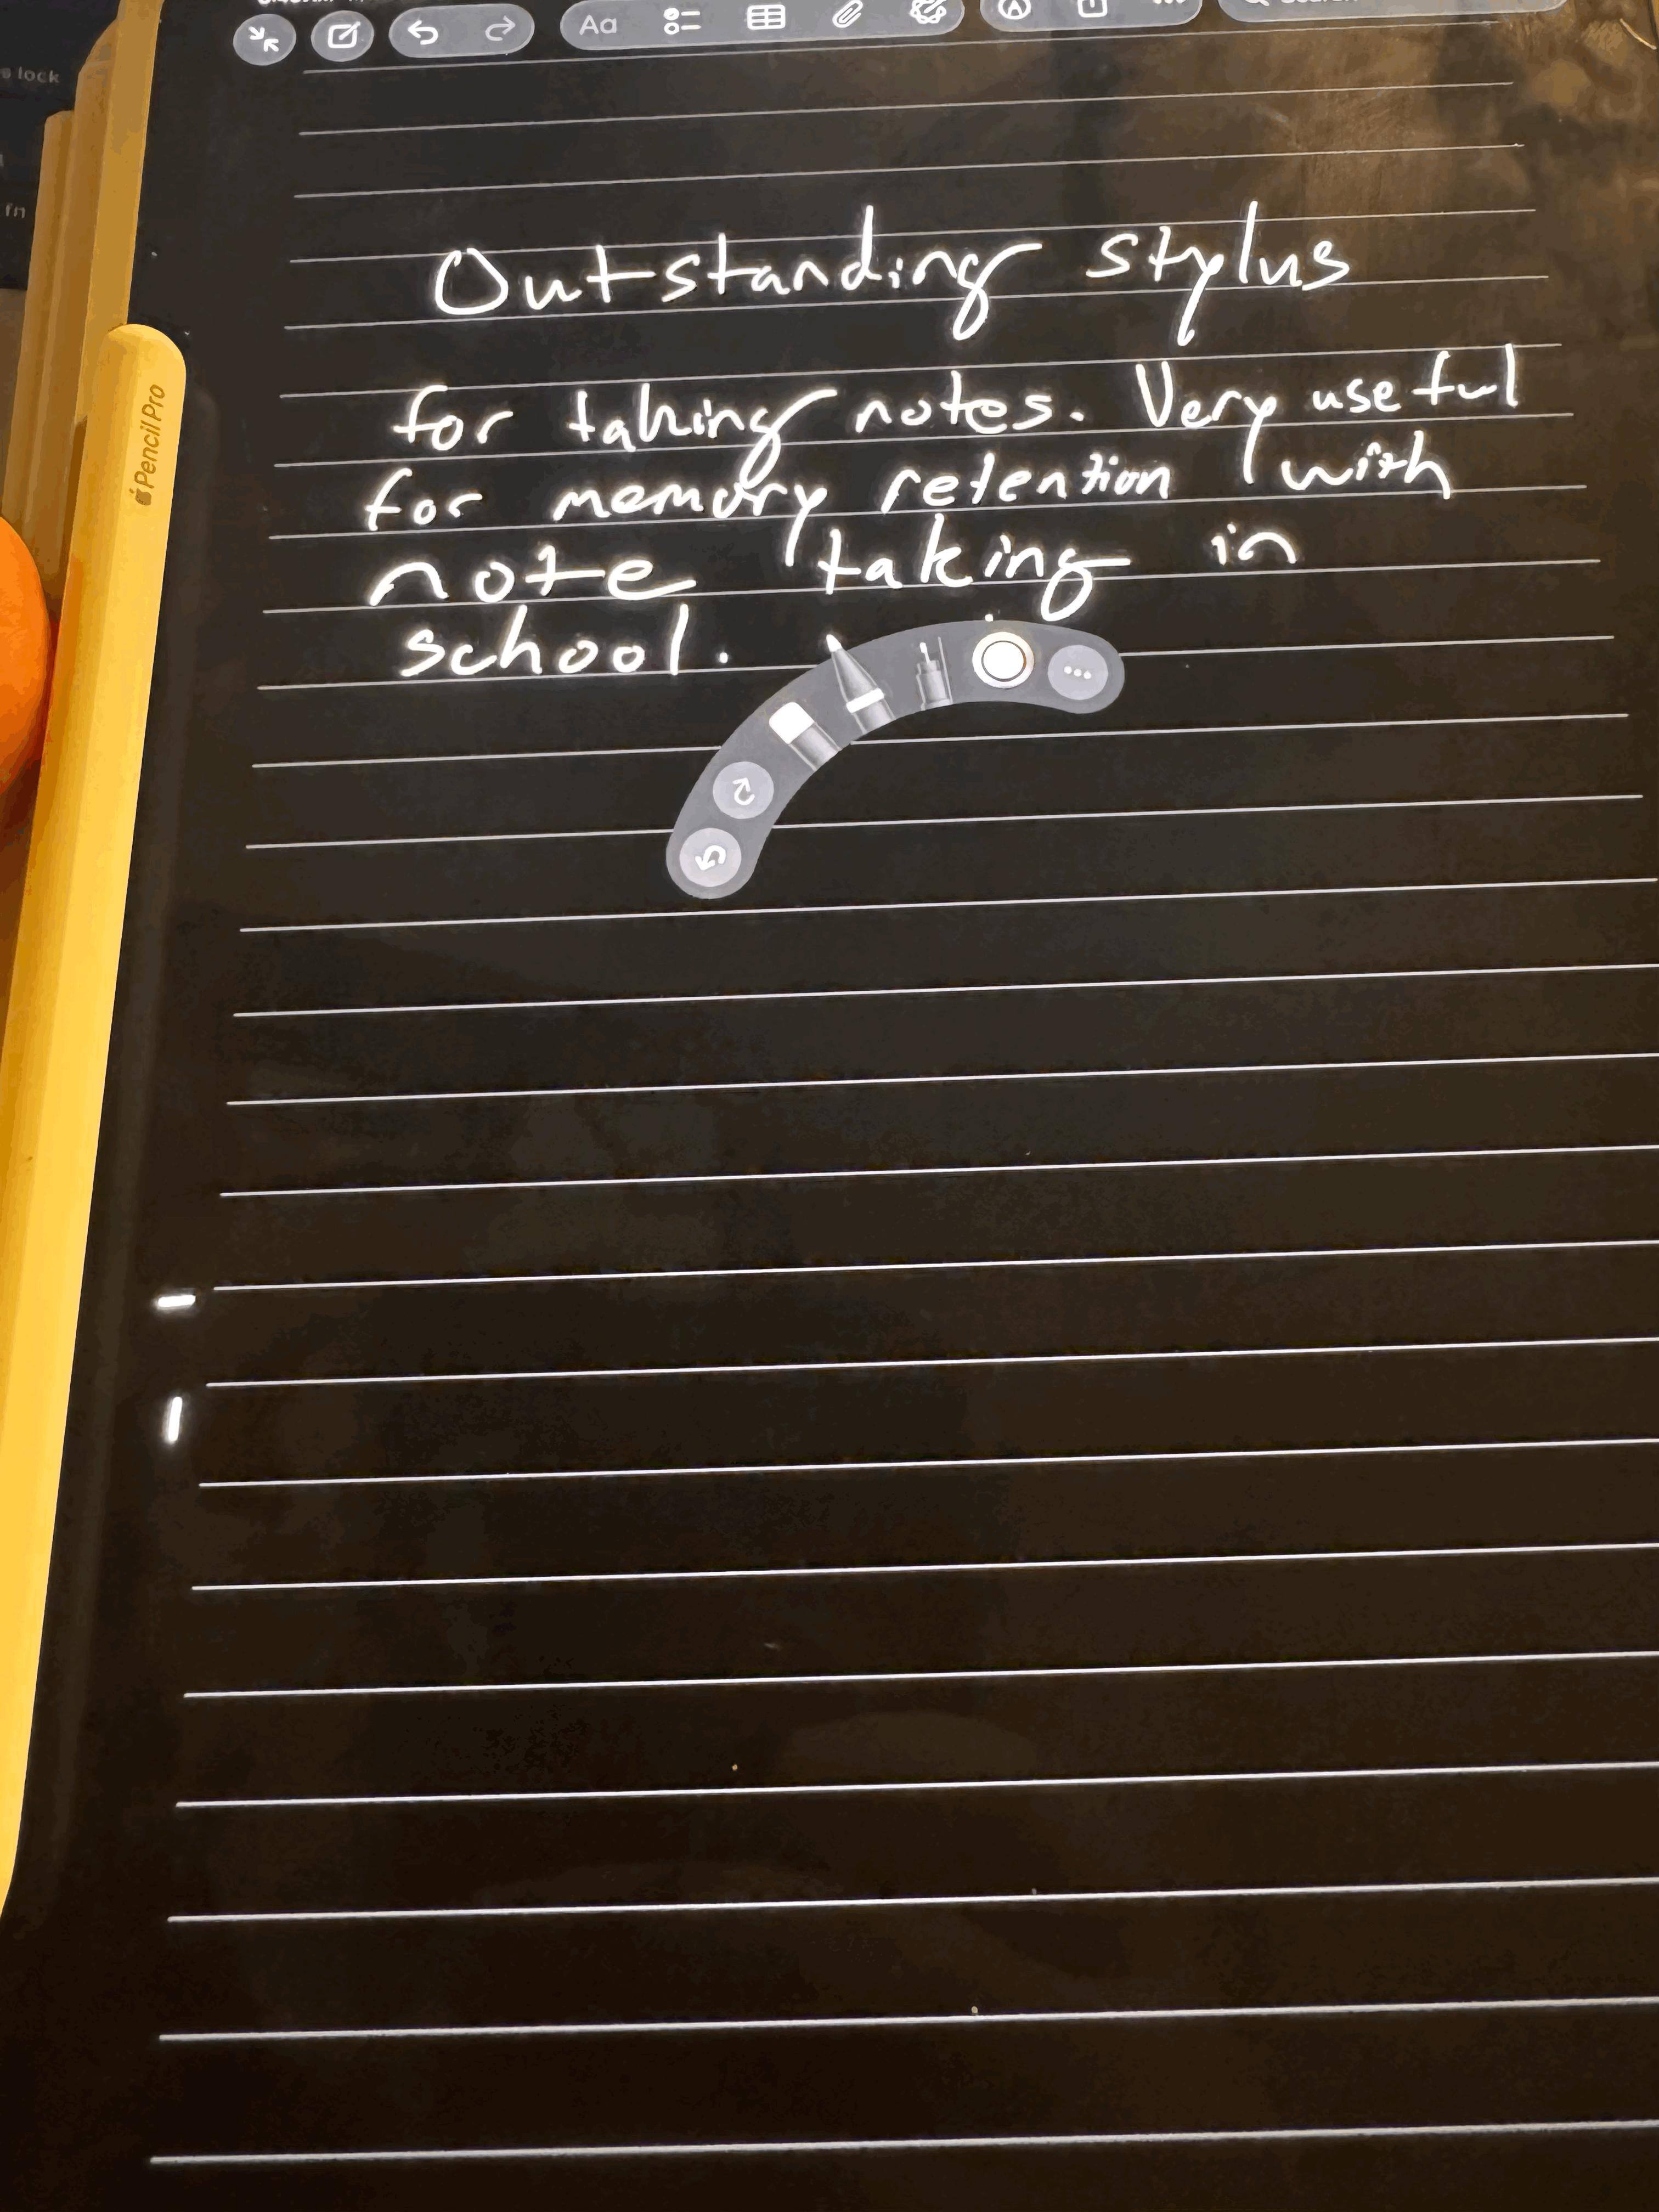 s lock
fn
Aa
Pencil Pro
Outstanding stylus
for taking notes. Very useful
for memory retention with
note taking in
school.